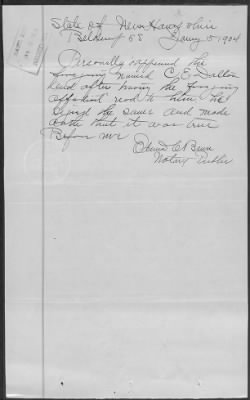 State of New Hampshire
Belknap SS Jany 5, 1904
Personally appeared the
foregoing named C. E. Dalton
and after having the foregoing
affidavit read to him he
signed the same and made
oath that it was true
Before me
Notary Public